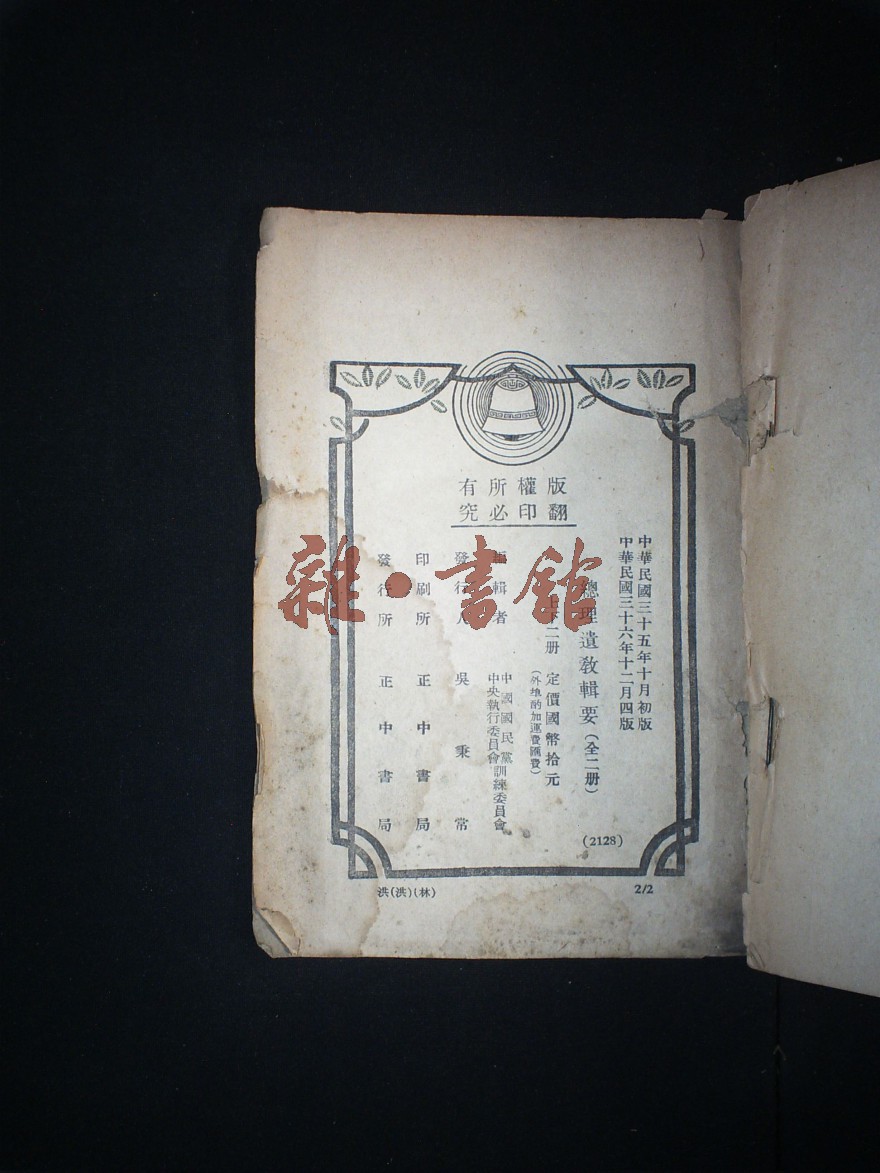 版權所有
翻印必究
中華民國三十五年十月初版
中華民國三十六年十二月四版
總理遺敎輯要(全二册)
上下二册 定價國幣拾元
(外埠酌加運費匯費)
編輯者 中國國民黨訓練委員會
中央執行委員會
發行人 吳秉常
印刷所 正中書局
發行所 正中書局
(2128)
洪(洪)(林)
2/2
雜·書館